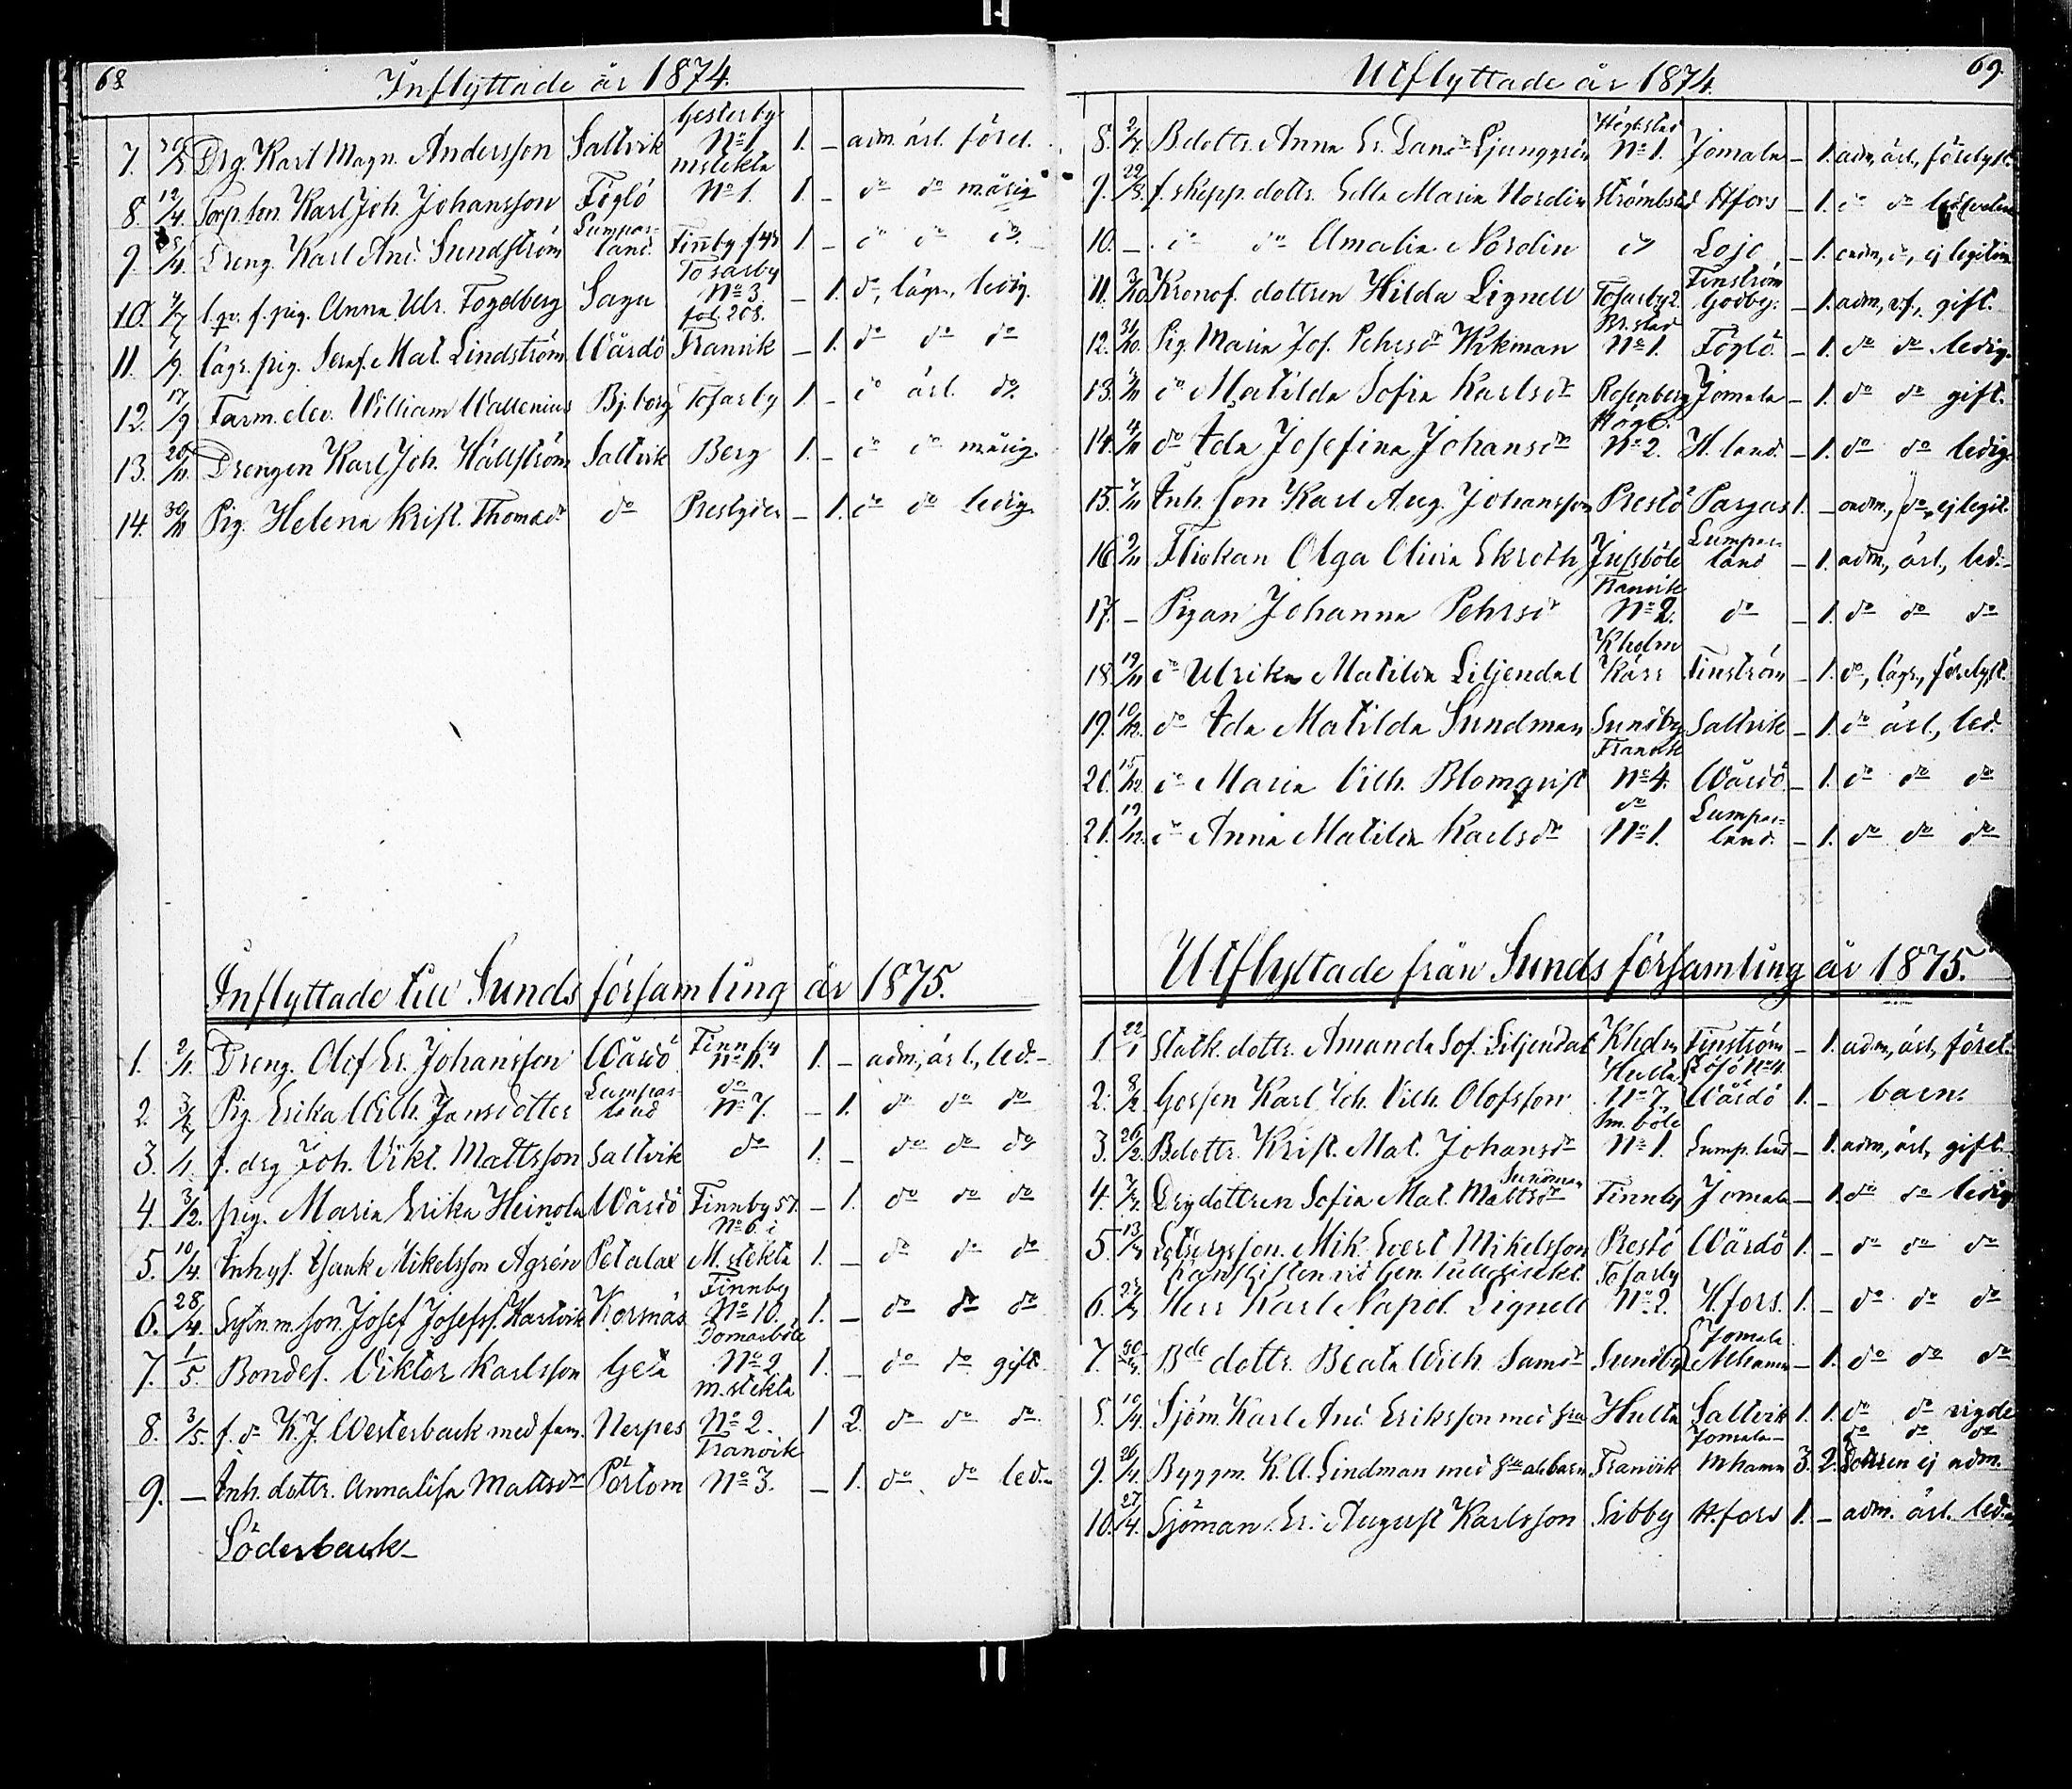 68.
Inflyttade år 1874.
7. Drg. Karl Magn. Andersson Saltvik Gesterby No 1 1. – adm. ärl. föret.
8. 12/4 Torp. son. Karl Joh. Johansson Föglö mstekta No 1. 1. – do do märig
9. 5/4 Dreng. Karl And. Sundström Lumparland. Finnby f 48 1 – do do do
10. 4/7 f. pig. Anna Ulr. Fogelberg Sagu Tosarby No 3 fol. 208. – 1. do, lägr., ledig.
11. 7/9. lägr. pig. Seraf. Mat. Lindström Wårdö Tranvik – 1. do do do
12. 17/9 Farm. elev. William Wallenius Bj.borg Tosarby 1. – do ärl. do.
13. 20/11. Drengen Karl Joh. Hällström Saltvik Berg 1. – do do märig.
14. 30/11 Pig. Helena Krist. Thomasdr do Prestgården – 1. do do ledig.
Inflyttade till Sunds församling år 1875.
1. 2/1. Dreng. Olof Er. Johansson Wårdö Finnby No 11. 1. – adm., ärl., led.
2. Pig. Erika Wilh. Jansdotter Lumparland do No 7. – 1. do do do
3. f. drg Joh. Vikt. Mattsson Saltvik do 1. – do do do
4. 3/2. pig. Maria Erika Heinola Wårdö Finnby 57. – 1. do do do
5. 10/4. Inhys. Isaak Mikelsson Ågrén Petalax No 6 i M. stekta 1. – do do do
6. 28/4. Sytn. m. son. Josef Josefss. Karlvik Korsnäs Finnby No 10. 1. – do do do
7. 1/5. Bondes. Viktor Karlsson Geta Domarböle No 2 1. – do do gift
8. 3/5. f. do K. J. Westerback med fam. Nerpes m. stekta No 2. 1 2. do do do
9. – Inh. dottr. Annalisa Mattsdr Pörtom Tranvik No 3. – 1. do do led.
Söderback
69.
Utflyttade år 1874.
8. 2/7. B.dottr. Anna Er. Dansdr Ljunggrén Högbstad No 1. Jomala – 1. adm, ärl., förelyst.
9. 22/ f. skepp. dottr. Edla Maria Nordin Strömbstad H.fors – 1. do do
10. – do do Amalia Nordin do Lojo – 1. oadm, do, ej legitim
11. 3/10. Kronof. dottren Hilda Lignell Tosarby 2. Finström Godby. – 1. adm, v.f., gift.
12. 31/10. Pig. Maria Jos. Pehrsdr Wikman Br.stad No 1. Föglö. – 1. do do ledig.
13. do Matilda Sofia Karlsdr Rosenberg Jomala – 1. do do gift.
14. 4/11 do Ida Josefina Johansdr Högb. No 2. H. land. – 1. do do ledig
15. Inh. son Karl Aug. Johansson Prestö Pargas 1. – oadm., do, ej legit.
16. 9/11 Flickan Olga Olivia Ekroth Jussböle Lumparland – 1. adm., ärl., led.
17. – Pigan Johanna Pehrsdr Tranvik No 2. do – 1. do do do
18. 19/11 do Ulrika Matilda Liljendal Kholm Kärr Finström – 1. do, lägr., förelyst.
19. 10/12. do Ida Matilda Sundman Sundby Saltvik – 1. do ärl., led.
20. 15/12 do Maria Vilh. Blomqvist Tranvik No 4. Wårdö – 1. do do do
21. 19/12. do Anna Matilda Karlsdr do No 1. Lumparland. – 1. do do do
Utflyttade från Sunds församling år 1875.
1 22/1 Statk. dottr. Amanda Sof. Liljendal Kholm Finström – 1. adm, ärl, föret.
2. 8/2. Gossen Karl Joh. Vilh. Olofsson Hulta No 7. Wårdö 1. – barn.
3. 26/2. B.dottr. Krist. Mat. Johansdr Sm. böle No 1. Lump. land – 1. adm, ärl, gift.
4. Drg dottren Sofia Mat. Mattsdr Sundman Finnby Jomala – 1. do do ledig
5. 13/ Lotsbrgsson. Mik. Evert Mikelsson Prestö Wårdö 1. – do do do
Kanslisten vid Gen. Tulldirekt.
6. Herr Karl Napol. Lignell Tosarby No 2. H.fors. 1. – do do do
7. 30/ Bde dottr. Beata Wilh. Samsdr Sundby Jomala Mhamn – 1. do do do
8. 10/4. Sjöm. Karl And. Eriksson med fru Hulta Saltvik 1. 1. do do vigde
9. 26/4. Byggm. K. A. Lindman med fru ale barn Tranvik Jomala Mhamn 3. 2. do do do Dottren ej adm.
10. 27/4. Sjöman Er. August Karlsson Sibby H.fors 1. – adm. ärl. led.